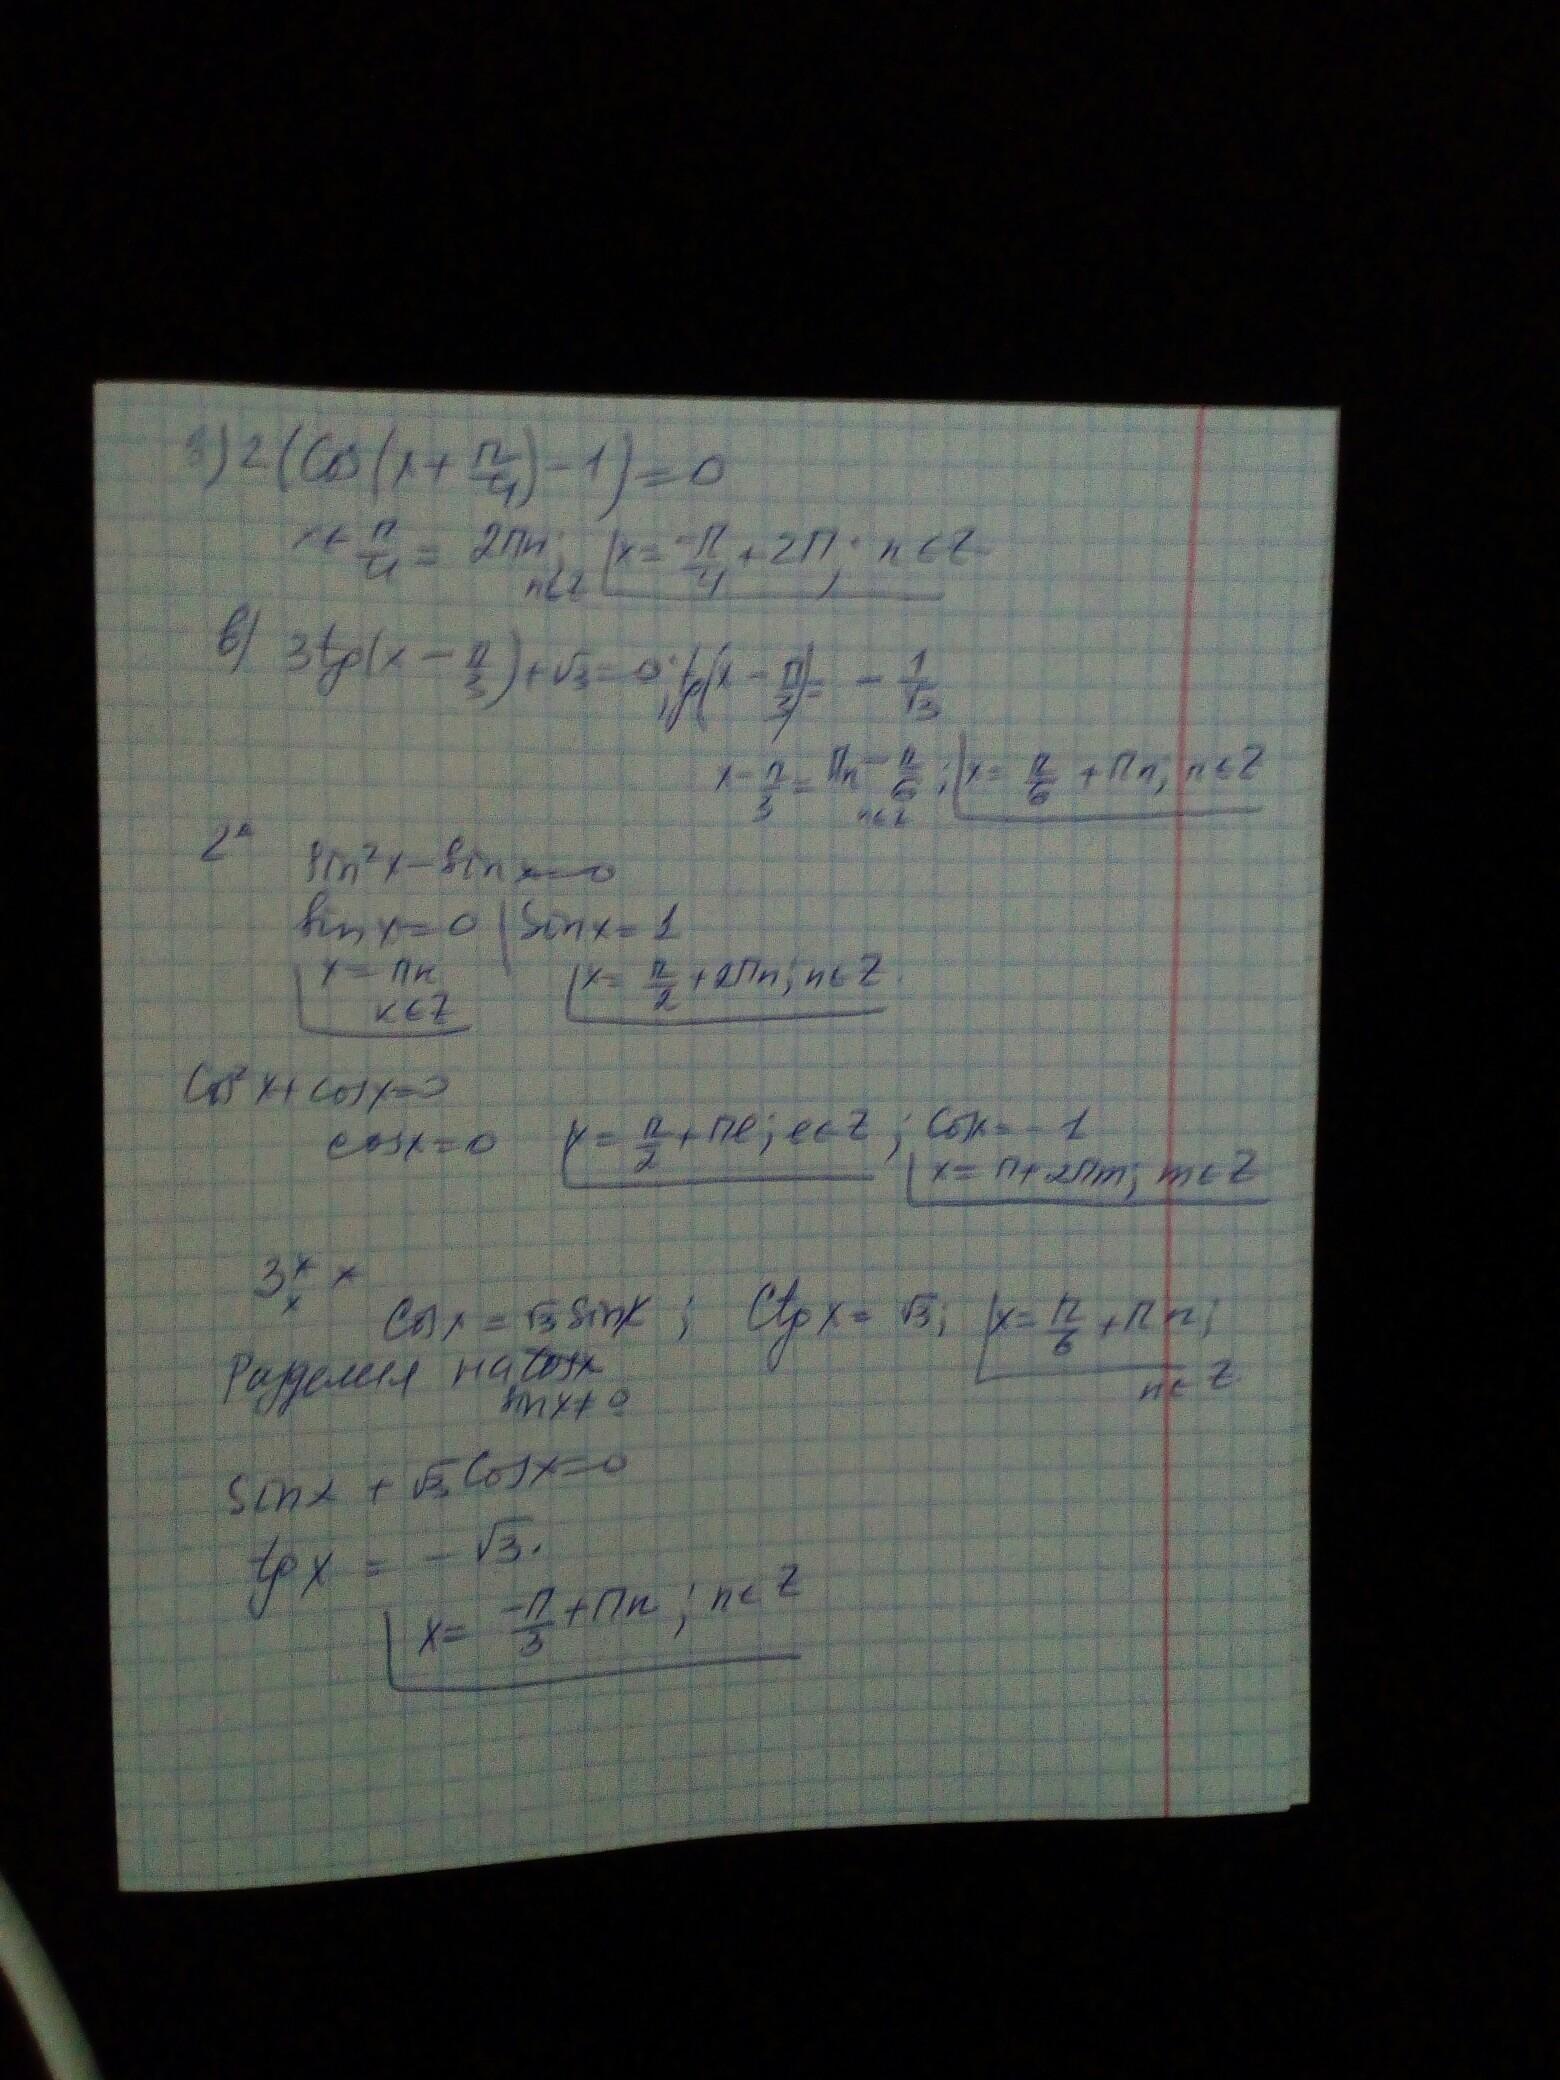 3) 2(Cos(x + π/4) - 1) = 0
x + π/4 = 2πn; n∈Z x = -π/4 + 2π; n∈Z
в) 3tg(x - π/3) + √3 = 0; tg(x - π/3) = - 1/√3
x - π/3 = πn - π/6; n∈Z x = π/6 + πn; n∈Z
2
Sin²x - Sinx = 0
Sinx = 0 | Sinx = 1
x = πк к∈Z x = π/2 + 2πn; n∈Z.
Cos²x + cosx = 0
cosx = 0 x = π/2 + πe; e∈Z; Cosx = -1
x = π + 2πm; m∈Z
3
Cosx = √3 Sinx; Ctgx = √3; x = π/6 + πn; n∈Z
Разделил на
Sinx ≠ 0
Sinx + √3 Cosx = 0
tgx = - √3.
x = -π/3 + πn; n∈Z